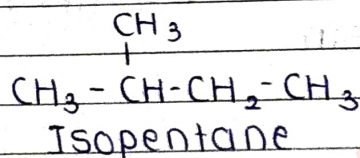 CH3
CH3-CH-CH2-CH3
Isopentane